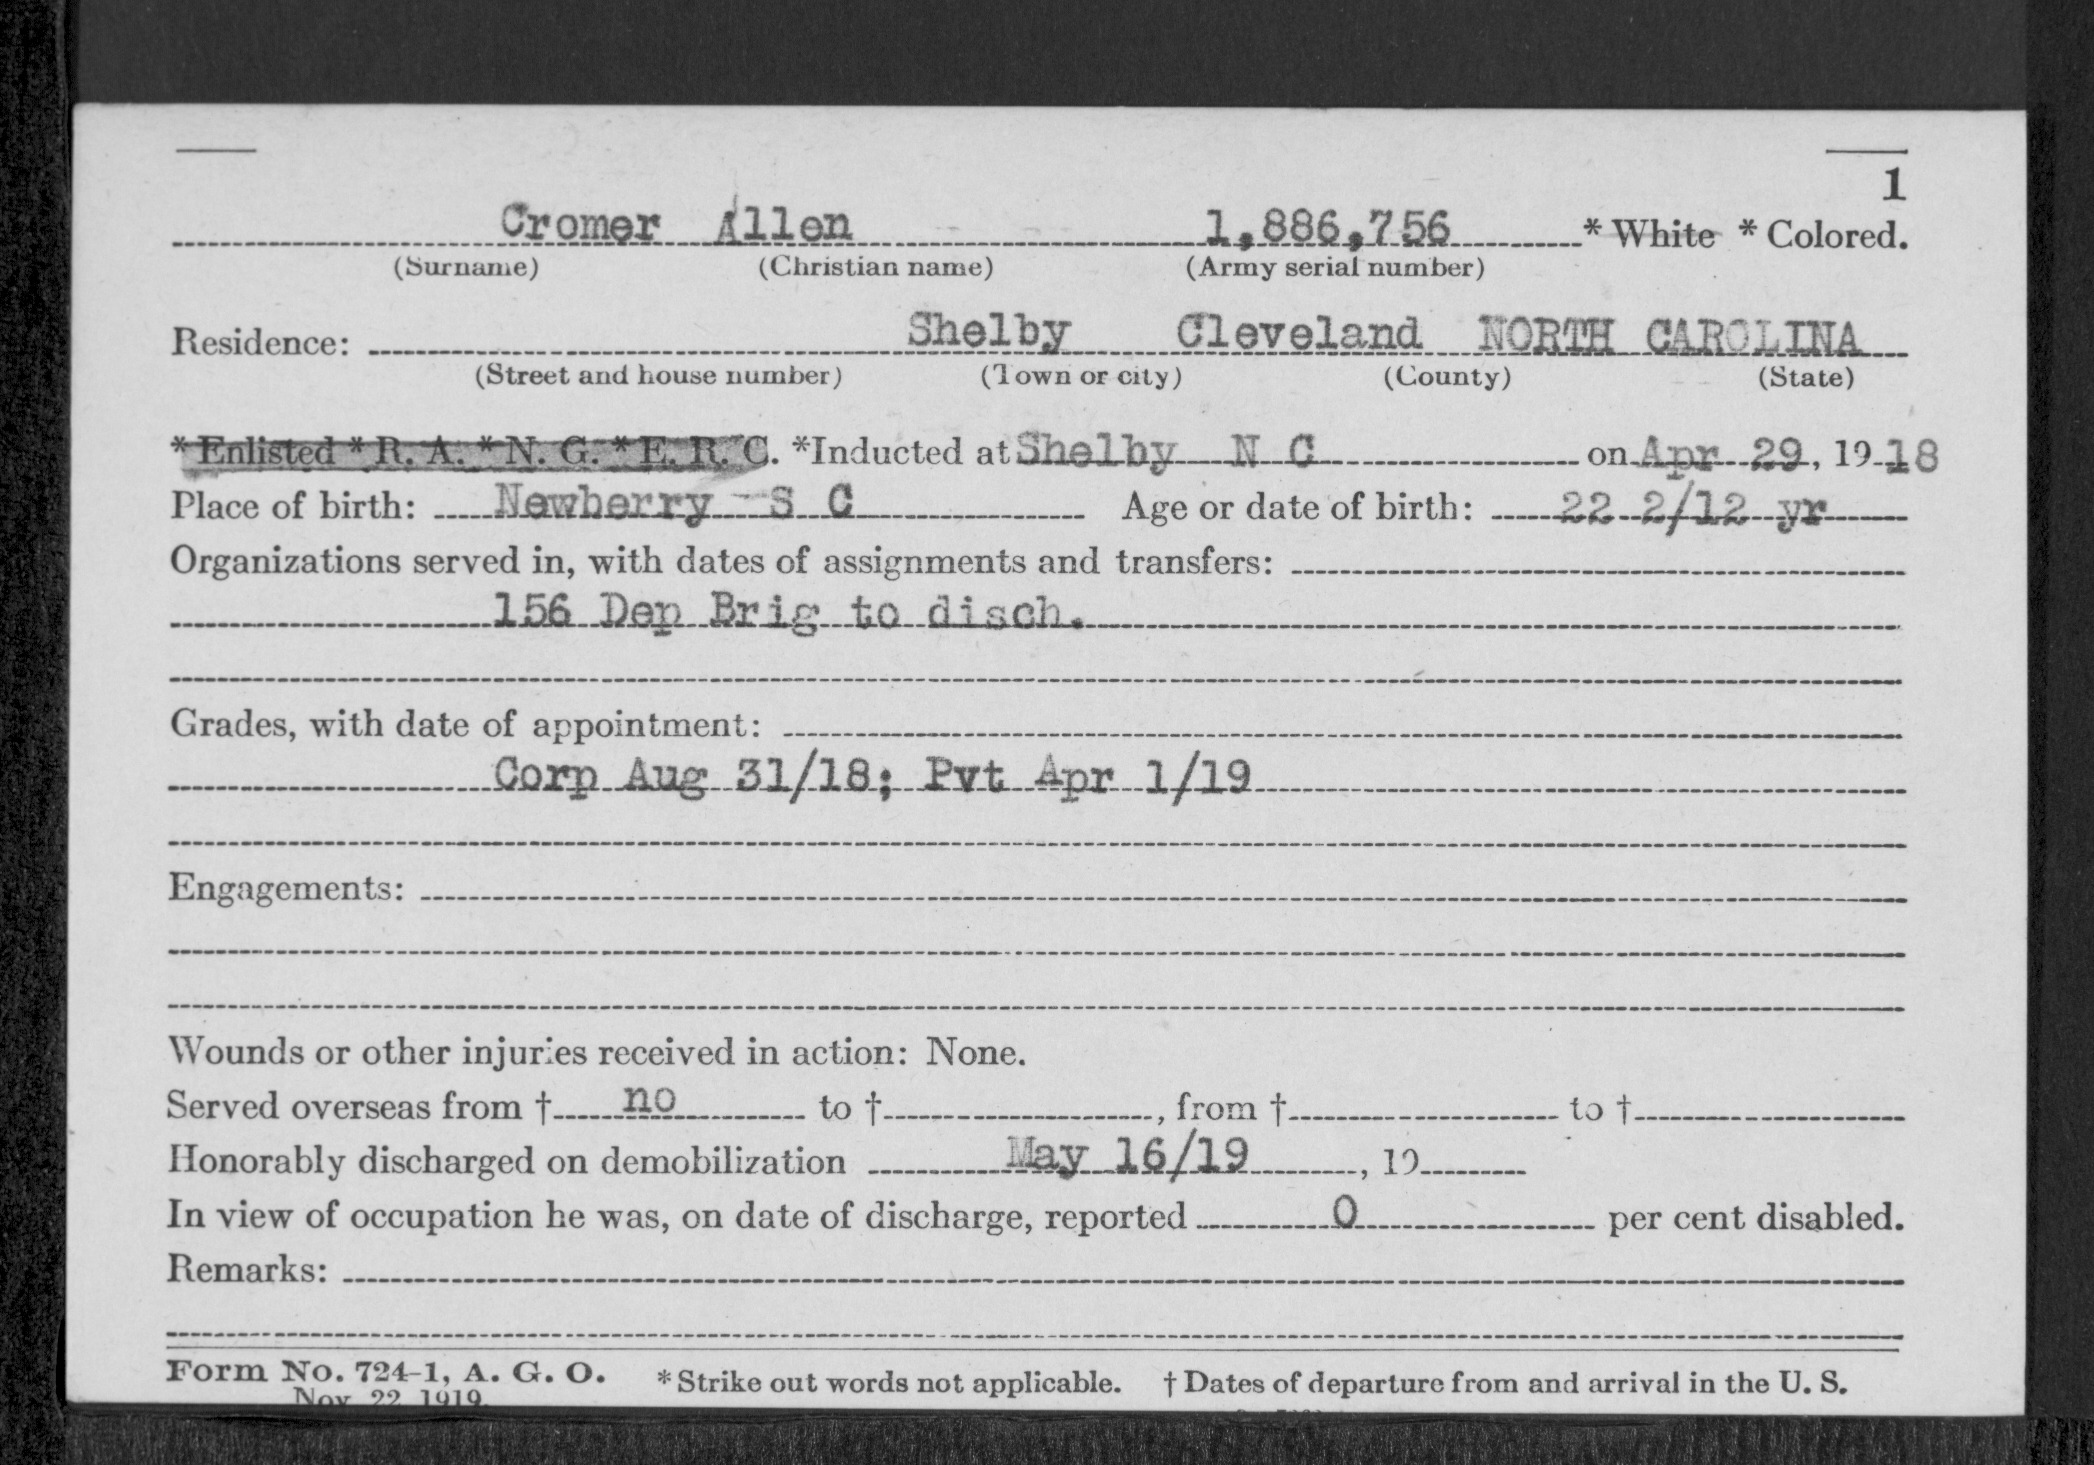 1
Cromer Allen 1,886,756 * White * Colored.
(Surname) (Christian name) (Army serial number)
Residence: Shelby Cleveland NORTH CAROLINA
(Street and house number) (Town or city) (County) (State)
* Enlisted * R. A. * N. G. * E. R. C. *Inducted at Shelby N C on Apr 29, 19 18
Place of birth: Newberry S C Age or date of birth: 22 2/12 yr
Organizations served in, with dates of assignments and transfers:
156 Dep Brig to disch.
Grades, with date of appointment:
Corp Aug 31/18; Pvt Apr 1/19
Engagements:
Wounds or other injuries received in action: None.
Served overseas from † no to †, from † to †
Honorably discharged on demobilization May 16/19, 19
In view of occupation he was, on date of discharge, reported 0 per cent disabled.
Remarks:
Form No. 724-1, A. G. O. * Strike out words not applicable. † Dates of departure from and arrival in the U. S.
Nov. 22, 1919.